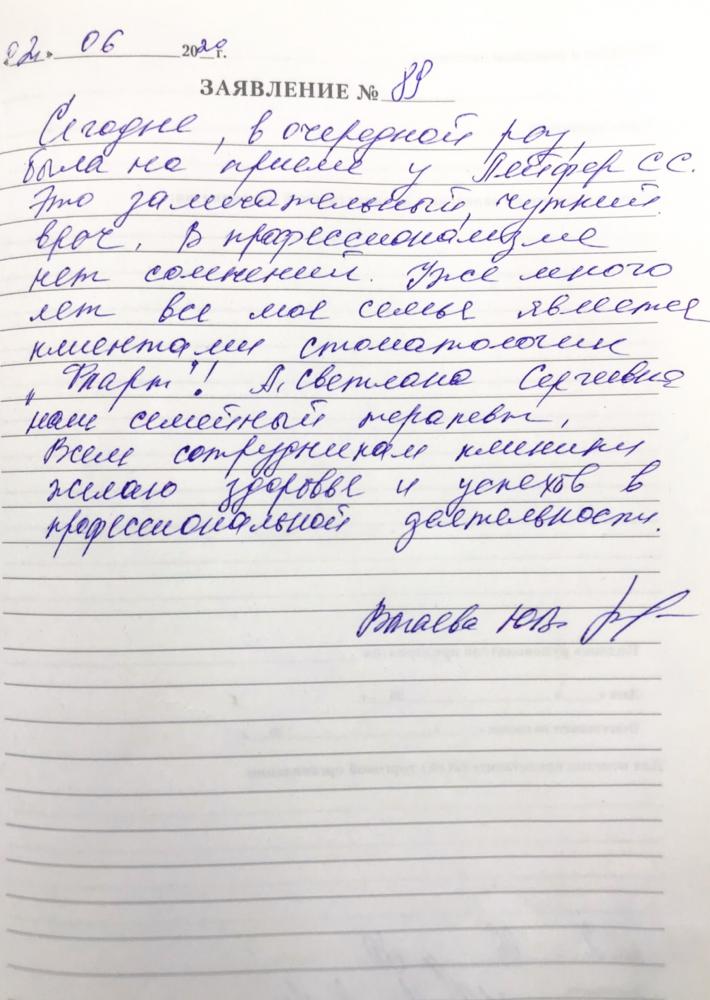 «02» 06 2020 г.
ЗАЯВЛЕНИЕ № 89
Сегодня, в очередной раз,
была на приеме у Лейфер С.С.
Это замечательный, чуткий
врач. В профессионализме
нет сомнений. Уже много
лет вся моя семья является
клиентами стоматологии
„Фларт"! А, Светлана Сергеевна
наш семейный терапевт.
Всем сотрудникам клиники
желаю здоровья и успехов в
профессиональной деятельности.
Ю.В.